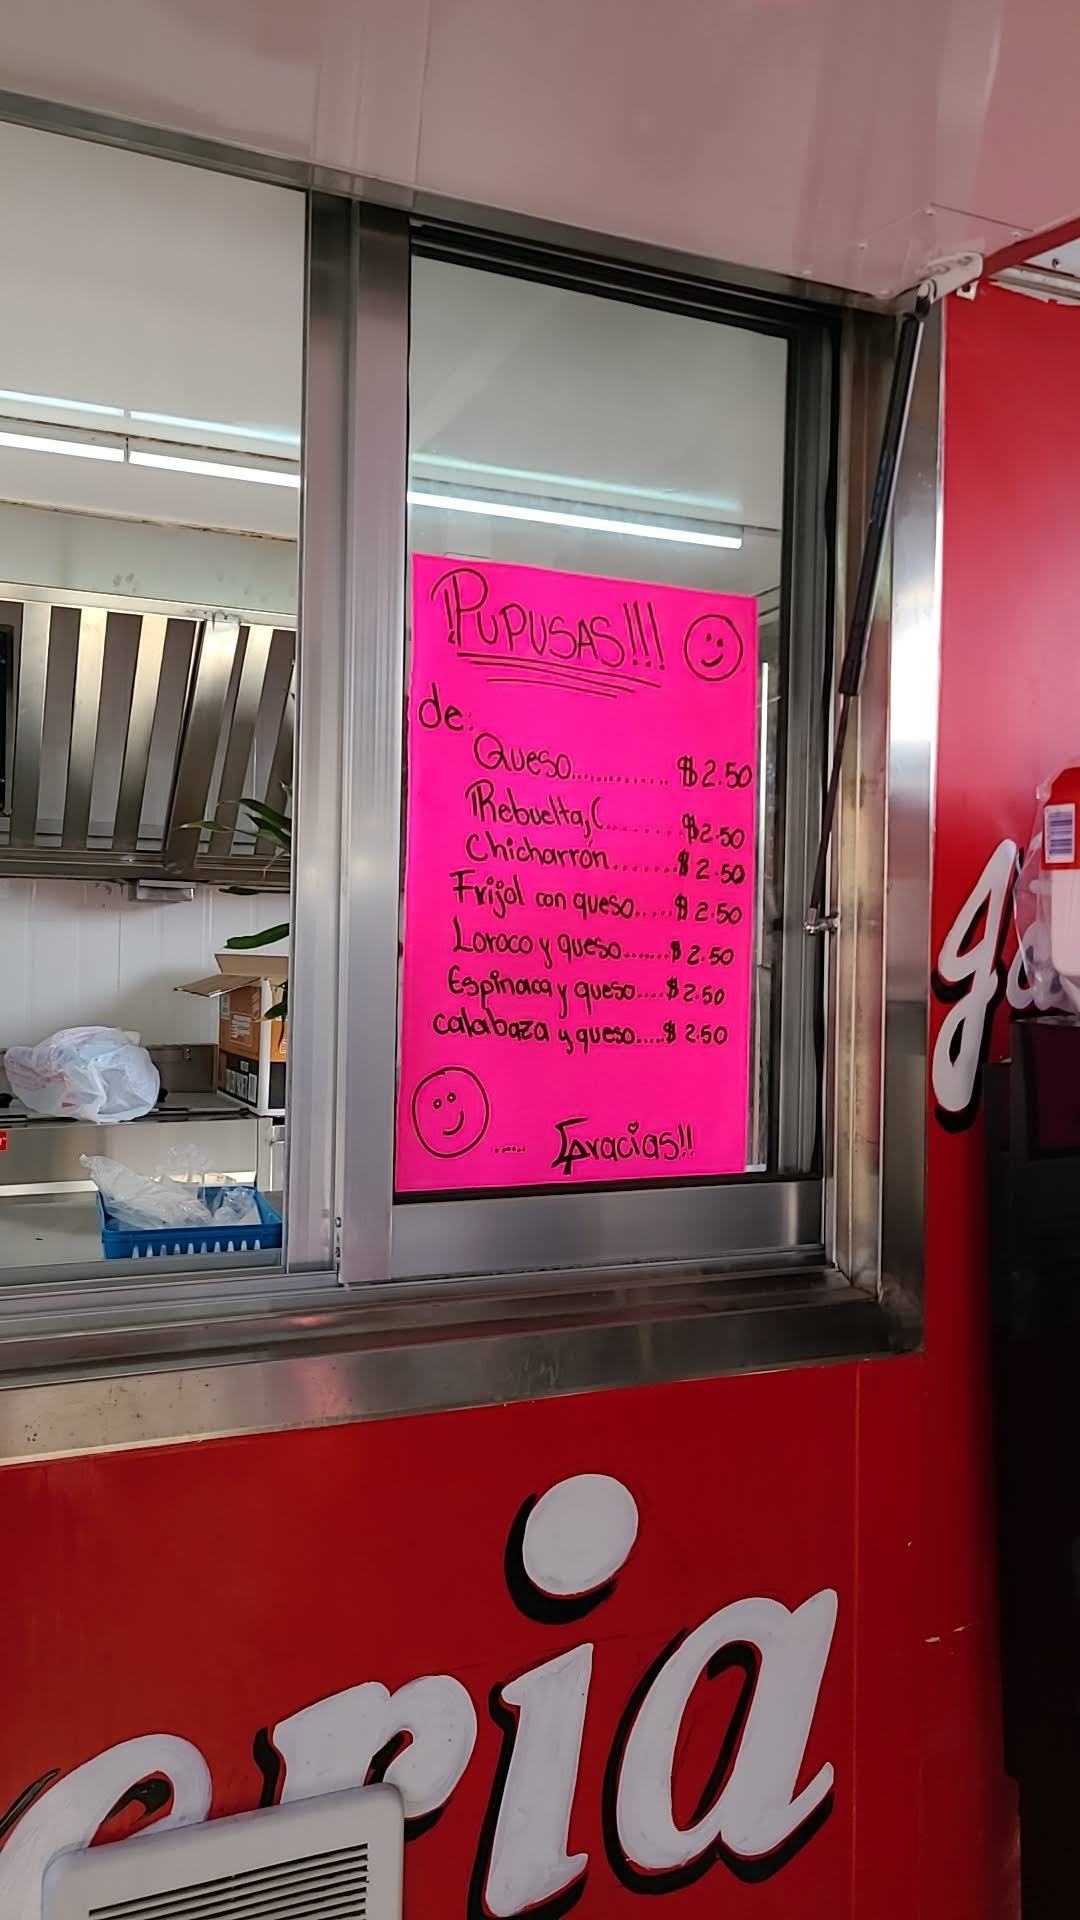 ¡PUPUSAS!!!
de:
Queso............. $2.50
Rebuelta, C........ $2.50
Chicharrón........ $2.50
Frijol con queso..... $2.50
Loroco y queso....... $2.50
Espinaca y queso.... $2.50
calabaza y queso..... $2.50
...... Gracias!!
eria